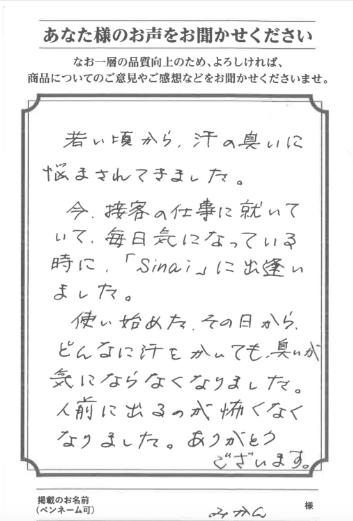 あなた様のお声をお聞かせください
なお一層の品質向上のため、よろしければ、
商品についてのご意見やご感想などをお聞かせくださいませ。
若い頃から、汗の臭いに
悩まされてきました。
今、接客の仕事に就いて
いて、毎日気になっている
時に、「Sinai」に出逢い
ました。
使い始めた、その日から、
どんなに汗をかいても、臭いが
気にならなくなりました。
人前に出るのが怖くなく
なりました。ありがとう
ございます。
掲載のお名前
(ペンネーム可)
みかん
様